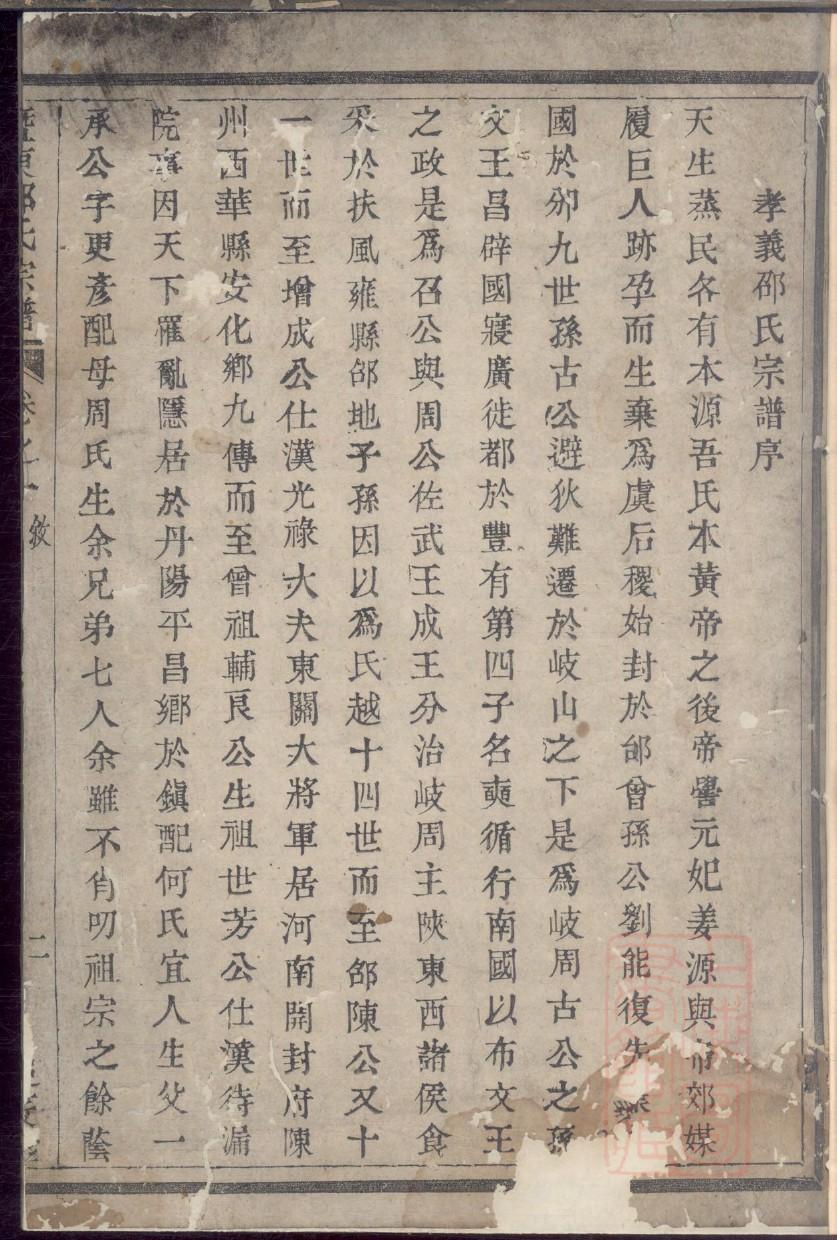 孝義邵氏宗譜序
天生蒸民各有本源吾氏本黃帝之後帝嚳元妃姜源與帝郊媒
履巨人跡孕而生棄爲虞后稷始封於邰曾孫公劉能復先
國於邠九世孫古公避狄難遷於岐山之下是爲岐周古公之孫
文王昌辟國寢廣徙都於豐有第四子名奭循行南國以布文王
之政是爲召公與周公佐武王成王分治岐周主陝東西諸侯食
采於扶風雍縣郃地子孫因以爲氏越十四世而至郃陳公又十
一世而至增成公仕漢光祿大夫東關大將軍居河南開封府陳
州西華縣安化鄉九傳而至曾祖輔艮公生祖世芳公仕漢待漏
院事因天下罹亂隱居於丹陽平昌鄉於鎭配何氏宜人生父一
承公字更彥配母周氏生余兄弟七人余雖不肖叨祖宗之餘蔭
暨東邵氏宗譜 卷之一 敘 二